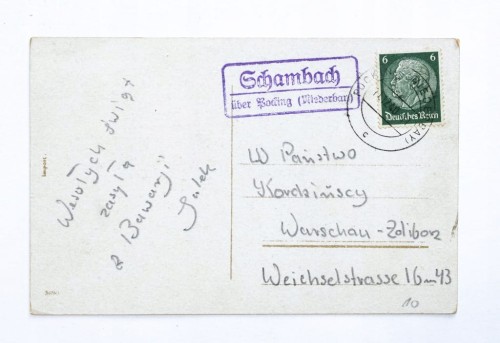 Schambach
über Pocking (Niederbay)
6 6
Deutsches Reich
Wesołych świąt
zasyła
z Bawarji
W Państwo
Kordzińscy
Warschau-Zoliborz
Weichselstrasse 16 m 43
10